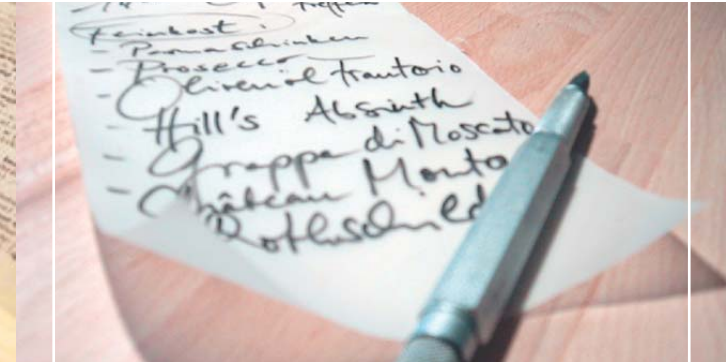 Treffen
Feinkost:
- Parmaschinken
- Prosecco
- Olivenöl Frantoio
- Hill's Absinth
- Grappa di Moscato
- Château Mouto
Rothschild